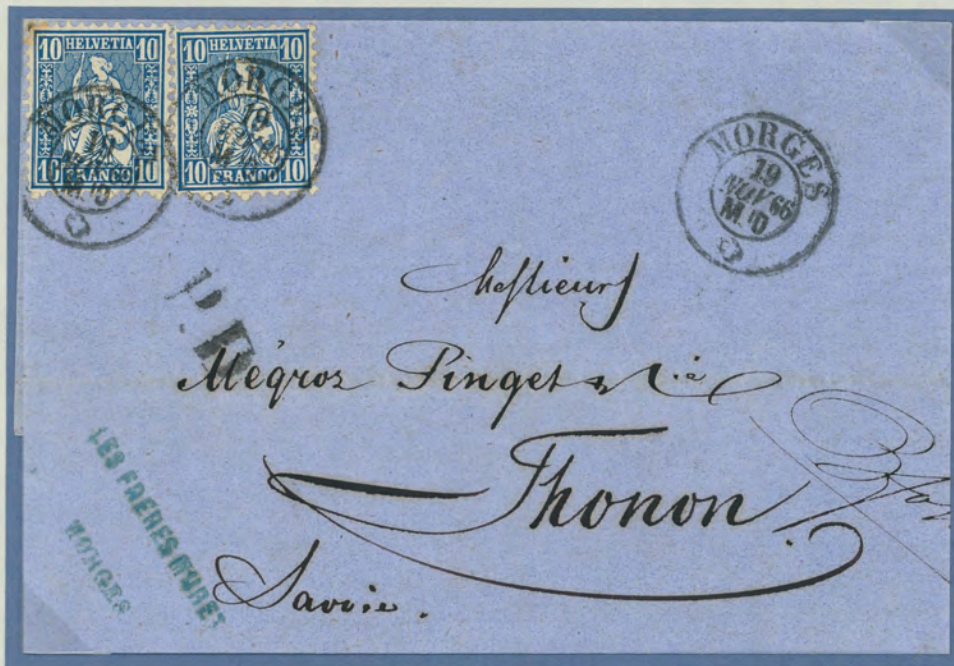 10 HELVETIA 10
10 FRANCO 10
10 HELVETIA 10
10 FRANCO 10
MORGES
MORGES
MORGES
19
NOV 66
M D
P.D.
Messieurs
Mégroz Pinget & Cie
Thonon
Savoie.
LES FRERES MURET
MORGES